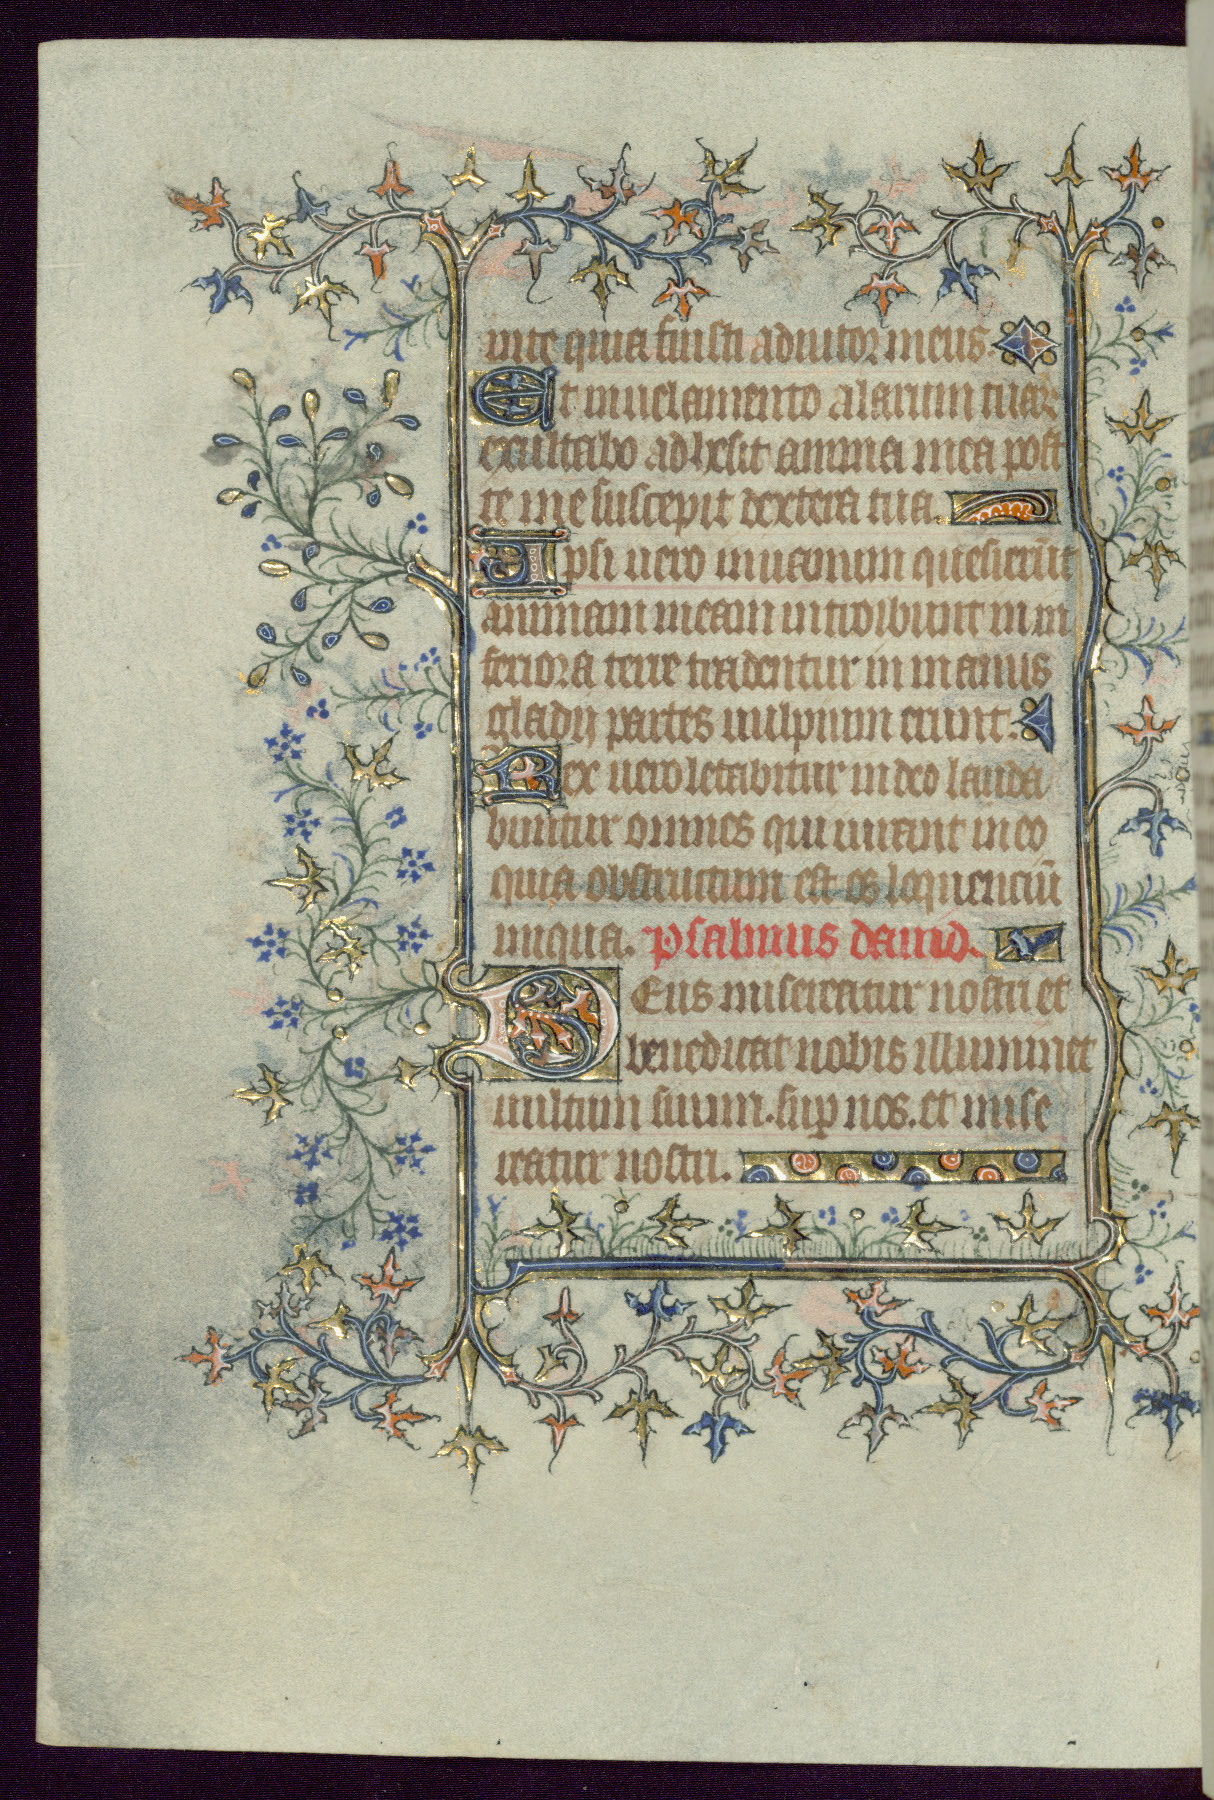 inte quia fuisti adiutor meus.
Et in uelamento alarum tuar
exultabo adhesit anima mea post
te me suscepit dextera tua.
Ipsi uero in uanum quesierūt
animam meam introibunt in in
feriora terre tradentur in manus
gladij partes uulpium erunt.
Rex uero letabitur in deo lauda
buntur omnes qui iurant in eo
quia obstructum est os loquenciū
iniqua. Psalmus dauid.
Deus misereatur nostri et
benedicat nobis illuminet
uultum suum. sup nos. et mise
reatur nostri.